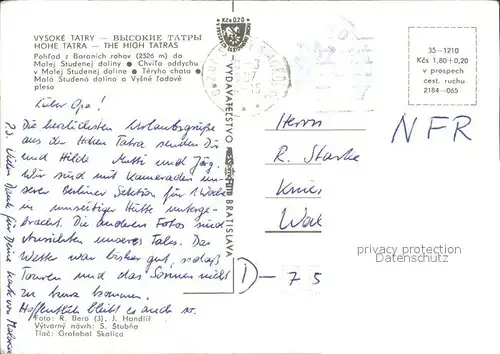 VYSOKÉ TATRY — ВЫСОКИЕ ТАТРЫ
HOHE TATRA — THE HIGH TATRAS
Pohľad z Baraních rohov (2526 m) do
Malej Studenej doliny • Chvíľa oddychu
v Malej Studenej doline • Téryho chata •
Malá Studená dolina a Vyšné ľadové
pleso
Kčs 0,20
35-1210
Kčs 1,80+0,20
v prospech
cest. ruchu
2184-065
VYDAVATEĽSTVO
BRATISLAVA
Lieber Opa!
Die herzlichsten Urlaubsgrüße
aus der Hohen Tatra senden Dir
und Hilde Mutti und Jörg.
Wir sind mit Kameraden un-
serer Berliner Sektion für 1 Woche
in unseitiger Hütte unterge-
bracht. Die anderen Fotos sind
Ansichten unseres Tales. Das
Wetter war bisher gut, sodaß
Touren und das Sonnen nicht
zu kurz kommen.
Hoffentlich bleibt es auch so.
PS. Vielen Dank für Deine Karte von
Herrn
R. Starke
NFR
D-75
privacy protection
Datenschutz
Foto: R. Bero (3), J. Handlíř
Výtvarný návrh: S. Stubňa
Tlač: Grafobal Skalica